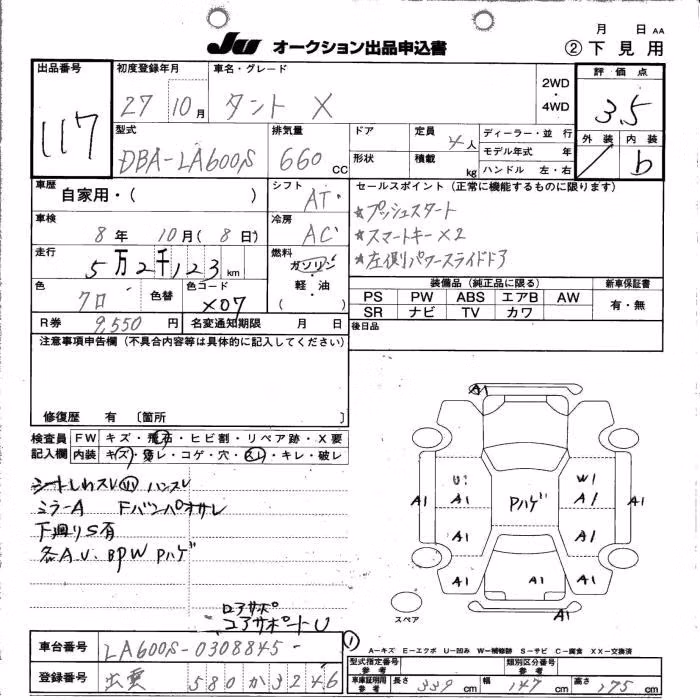 月 日 AA
JU オークション出品申込書 ②下見用
出品番号 117
初度登録年月 27 10月
車名・グレード タント X
2WD・4WD
評価点 3.5
外装 内装 b
型式 DBA-LA600S
排気量 660 CC
ドア 形状
定員 4人
積載 kg
ディーラー・並行
モデル年式 年
ハンドル 左・右
車歴 自家用・( )
シフト AT
車検 8年 10月(8日)
冷房 AC
走行 5万2千123 km
燃料 ガソリン・軽油 ( )
色 クロ 色替 色コード X07
R券 9,550円 名変通知期限 月 日
セールスポイント(正常に機能するものに限ります)
★プッシュスタート
★スマートキー×2
★左側パワースライドドア
装備品(純正品に限る)
PS PW ABS エアB AW
SR ナビ TV カワ
新車保証書 有・無
後日品
注意事項申告欄(不具合内容等は具体的に記入してください)
修復歴 有 〔箇所 〕
検査員記入欄
FW キズ・飛石・ヒビ割・リペア跡・X要
内装 キズ・汚レ・コゲ・穴・スレ・キレ・破レ
シートしわスレ ハンスレ
ミラーA Fバンパオサレ
下廻りS有
各A.U. BPW Pハゲ
コアサポ
コアサポートU
A1
U1 A1 Pハゲ W1 A1
A1 A1
A1 A1
A1 A1 A1
A1
スペア
①
A-キズ E-エクボ U-凹み W-補修跡 S-サビ C-腐食 XX-交換済
車台番号 LA600S-0308845-
登録番号 出雲 580 か 3246
型式指定番号 参考
類別区分番号 参考
車庫証明用参考 長さ 339 cm 幅 147 cm 高さ 175 cm